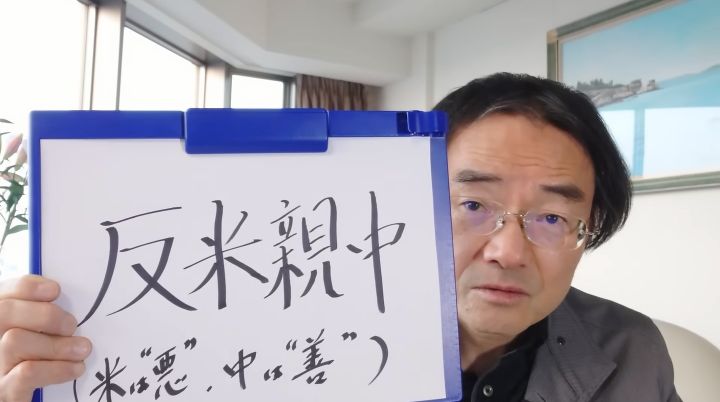 反米親中
(米は“悪”、中は“善”)